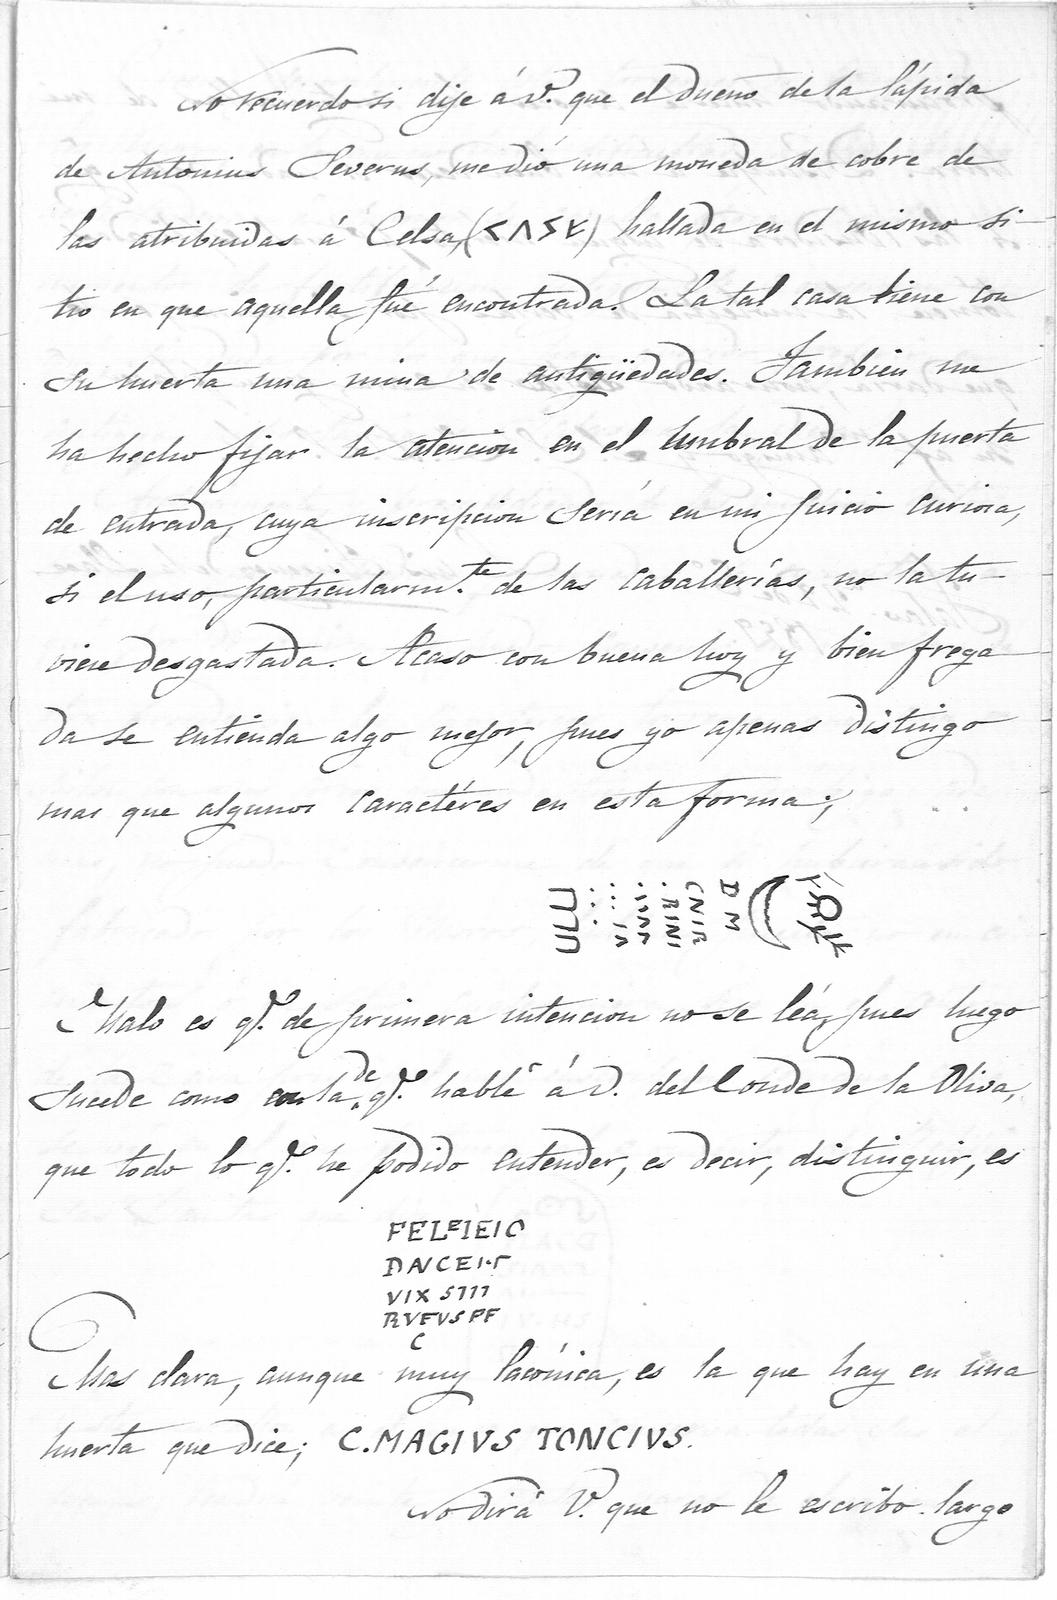 No recuerdo si dije á V. que el dueño de la lápida
de Antonius Severus, me dió una moneda de cobre de
las atribuidas á Celsa, () hallada en el mismo si-
tio en que aquella fué encontrada. La tal casa tiene con
su huerta una mina de antigüedades. Tambien me
ha hecho fijar la atencion en el umbral de la puerta
de entrada, cuya inscripcion sería en mi juicio curiosa,
si el uso, particularm.te de las caballerías, no la tu-
viese desgastada. Acaso con buena luz y bien frega
da se entienda algo mejor, pues yo apenas distingo
mas que algunos caractéres en esta forma;
D M
CNIR
. RINI
Malo es q.e de primera intencion no se léa, pues luego
sucede como con la de q.e hablé á V. del Conde de la Oliva,
que todo lo q.e he podido entender, es decir, distinguir, es
FELFIEIC
DNCEI.
VIX
RVFVS PF
C
Mas clara, aunque muy lacónica, es la que hay en una
huerta que dice; C. MAGIVS TONCIVS.
No dirá V. que no le escribo largo